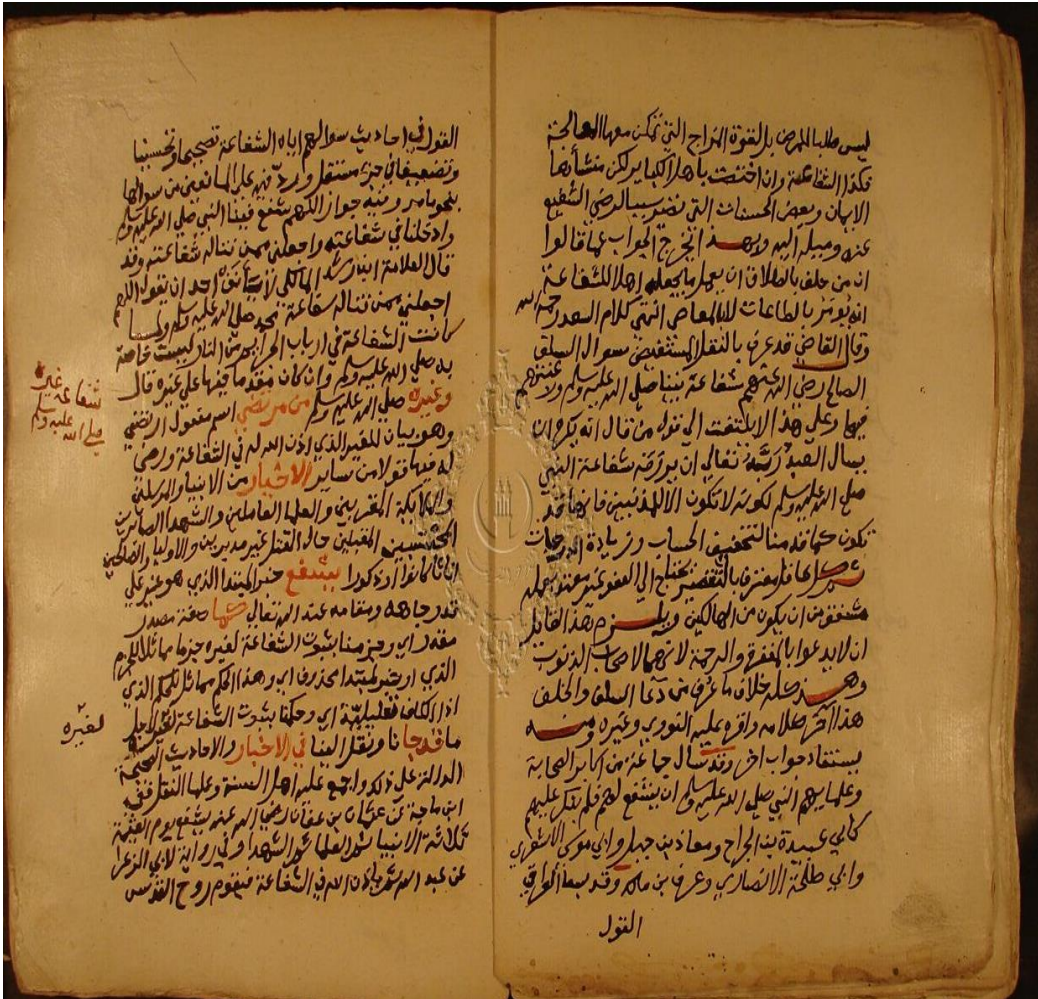 ليس طلبا للمرض بل للقوة المزاج التي تمكن معها المعالجة
فكذا الشفاعة وان اختصت باهل الكباير لكن منشأوها
الايمان وبعض الحسنات التي تصير سببا لرضى الشفيع
عنه وميله اليه وبهذا تخرج الجواب عما قالوا
ان من حلف بالطلاق ان يعمل ما يجعله اهلا للشفاعة
انه يؤمر بالطاعات لا بالمعاصي انتهى كلام السعد رحمه الله
وقال القاضي قد عرف بالنقل المستفيض سوال السلف
الصالح رضي الله عنهم شفاعة نبينا صلى الله عليه وسلم ورغبتهم
فيها وعلى هذا لا يلتفت الى قول من قال انه يكره ان
يسال العبد ربه تعالى ان يرزقه شفاعة النبي
صلى الله عليه وسلم لكونه لا تكون الا للمذنبين فانها قد
تكون كما قدمنا لتخفيف الحساب وزيادة الدرجات
ثم كل عاقل معترف بالتقصير محتاج الى العفو غير معتد بعمله
مشفق من ان يكون من الهالكين ويلزم هذا القايل
ان لا يدعوا بالمغفرة والرحمة لانهما لاصحاب الذنوب
وهذا كله خلاف ما عرف من دعا السلف والخلف
هذا آخر كلامه واقره عليه النووي وغيره ومنه
يستفاد جواب اخر وقد سال جماعة من اكابر الصحابة
وعلمايهم النبي صلى الله عليه وسلم ان يشفع لهم فلم ينكر عليهم
كابي عبيدة بن الجراح ومعاذ بن جبل وابي موسى الاشعري
وابي طلحة الانصاري وعوف بن مالك وقد بسط العراقي
القول
القول في احاديث سوالهم اياه الشفاعة تصحيحا وتحسينا
وتضعيفا في جزء مستقل ورد فيه على المانعين من سوالها
بنحو ما مر وفيه جواز اللهم شفع فينا النبي صلى الله عليه وسلم
وادخلنا في شفاعته واجعلني ممن تناله شفاعته وقد
قال العلامة ابن رشد المالكي لا يانف احد ان يقول اللهم
اجعلني ممن تناله شفاعة محمد صلى الله عليه وسلم ولما
كانت الشفاعة في ارباب الجرايم من النار ليست خاصة
به صلى الله عليه وسلم وان كان مقدما فيها على غيره قال
وغيره صلى الله عليه وسلم من مرتضى اسم مفعول ارتضى
وهو بيان للغير الذي اذن الله له في الشفاعة ورضي
له فيها قولا من ساير الاخيار من الانبيا والمرسلين
والملايكة المقربين والعلما العاملين والشهدا الصابرين
المحتسبين المقبلين حال القتل غير مدبرين والاوليا والصالحين
اناثا كانوا او ذكورا يشفع خبر المبتدا الذي هو غير على
قدر جاهه ومقامه عند الله تعالى كما صفة مصدر
مقدر اي وجزمنا بثبوت الشفاعة لغيره جزما مماثلا للجزم
الذي او خبر لمبتدا محذوف اي وهذا الحكم مماثل للحكم الذي
اذ الكاف تعليلية اي وحكمنا بثبوت الشفاعة لغيره لاجل
ما قد جا نا ونقل الينا في الاخبار والاحاديث الصحيحة
الدالة على ذلك واجمع عليه اهل السنة وعلما النقل ففي
ابن ماجة عن عثمان بن عفان رضي الله عنه يشفع يوم القيمة
ثلاثة الانبيا ثم العلما ثم الشهدا وفي رواية لابي الزعرا
عن عبد الله ثم ياذن الله في الشفاعة فيقوم روح القدس
شفاعة غيره
صلى الله عليه وسلم
لغيره